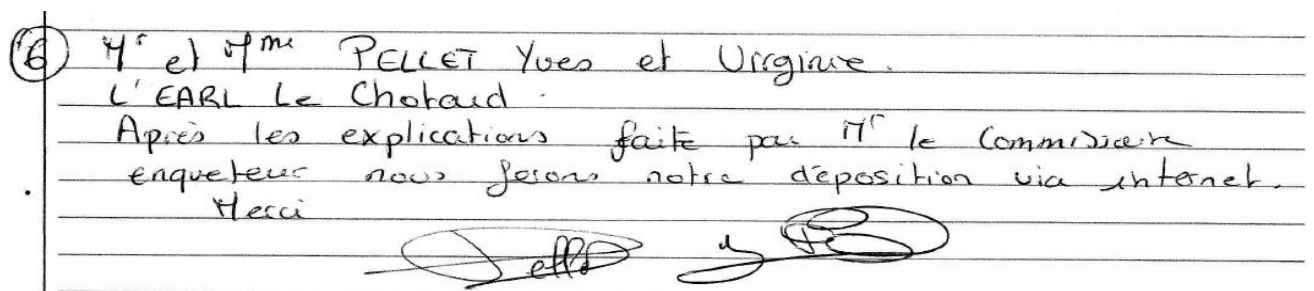 6 Mr et Mme PELLET Yves et Virginie.
L'EARL Le Chotard.
Après les explications faite par Mr le Commissaire
enqueteur nous ferons notre déposition via internet.
Merci